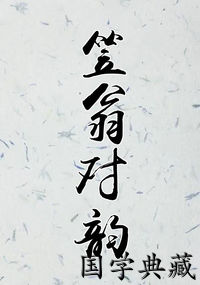 笠翁对韵
国学典藏